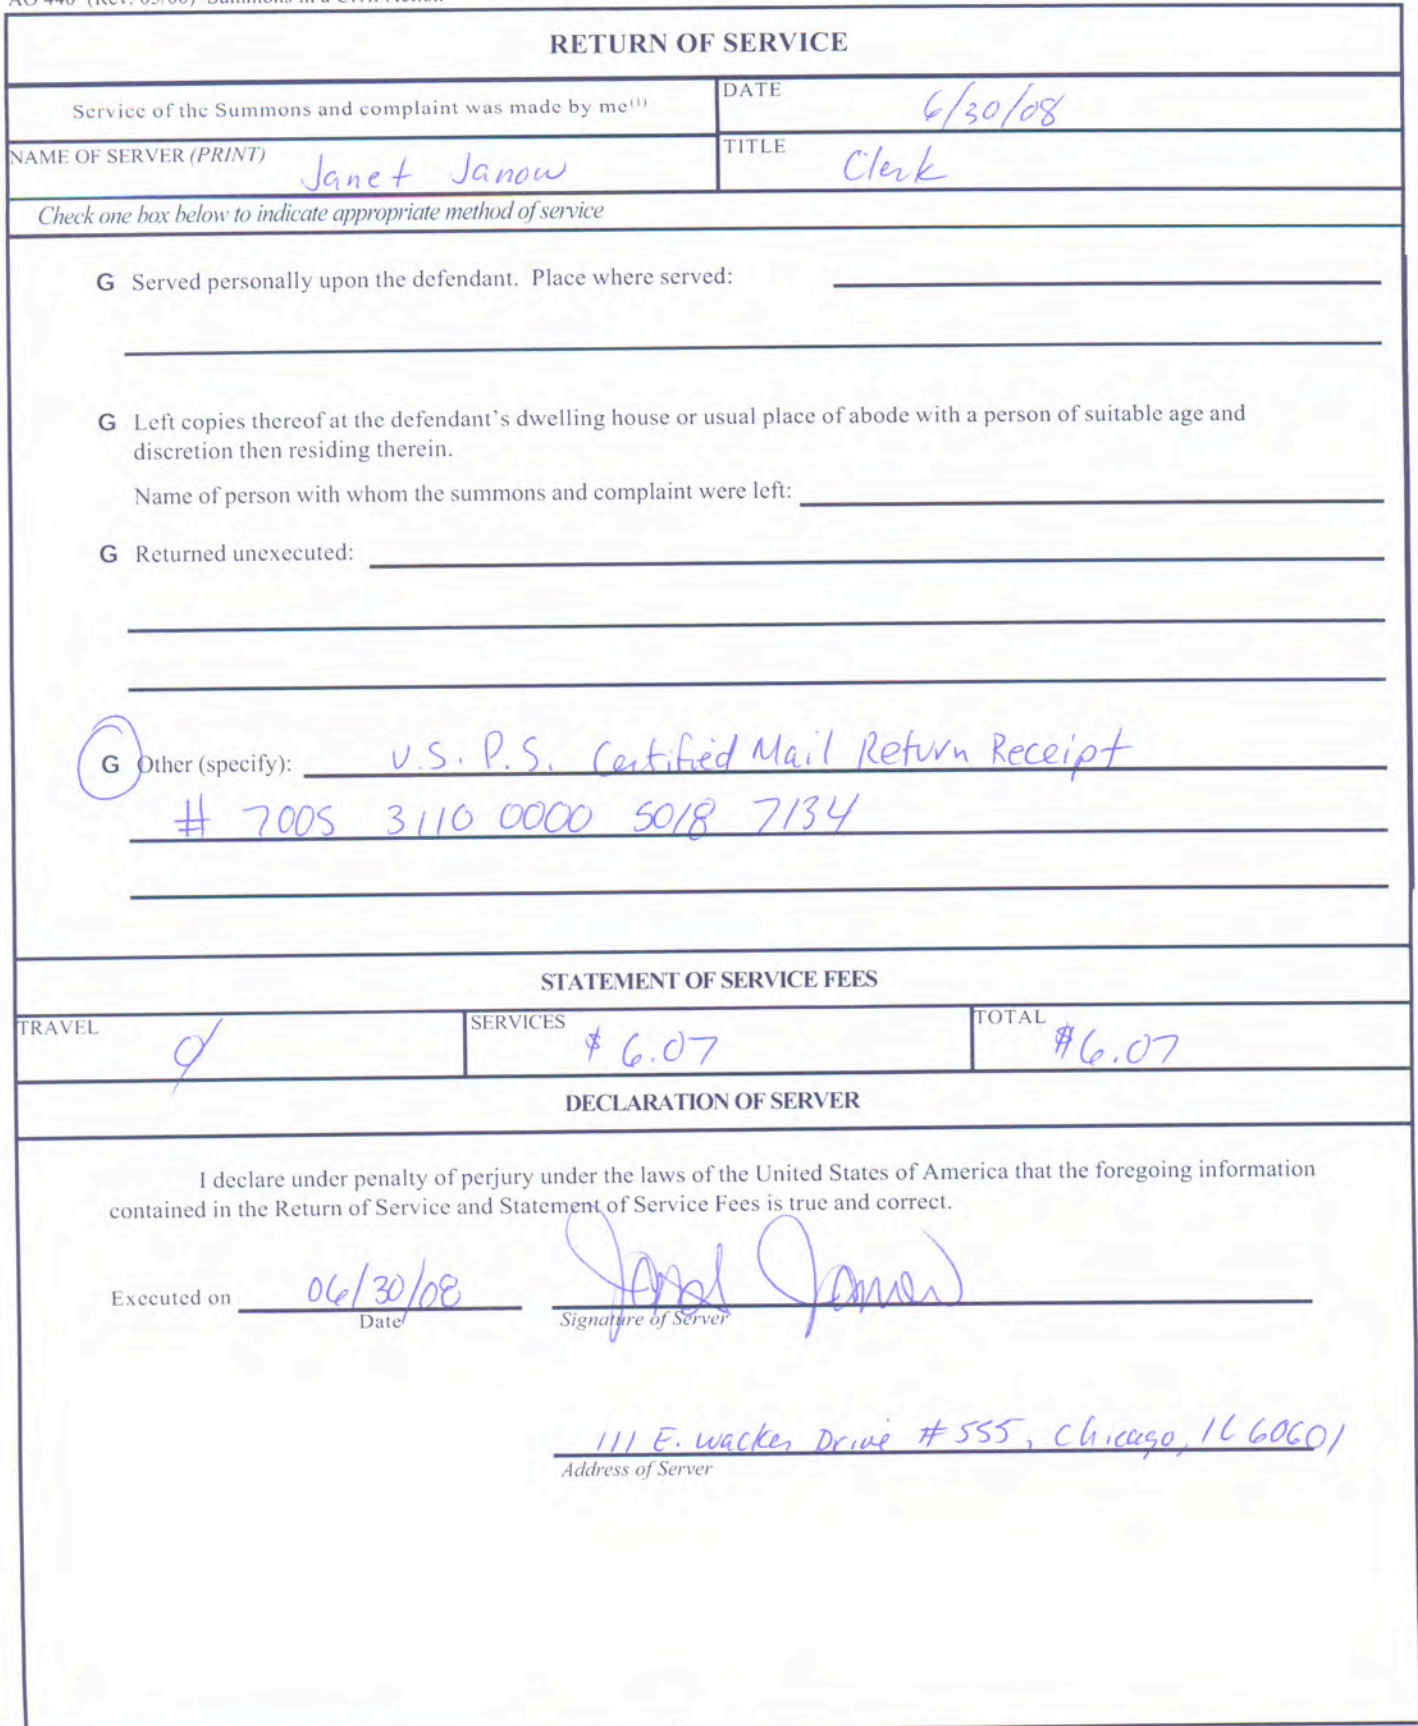 AO 440 (Rev. 05/00) Summons in a Civil Action
RETURN OF SERVICE
Service of the Summons and complaint was made by me(1)
DATE
6/30/08
NAME OF SERVER (PRINT)
Janet Janow
TITLE
Clerk
Check one box below to indicate appropriate method of service
G Served personally upon the defendant. Place where served:
G Left copies thereof at the defendant's dwelling house or usual place of abode with a person of suitable age and
discretion then residing therein.
Name of person with whom the summons and complaint were left:
G Returned unexecuted:
G Other (specify): U.S. P.S. Certified Mail Return Receipt
# 7005 3110 0000 5018 7134
STATEMENT OF SERVICE FEES
TRAVEL
SERVICES
$ 6.07
TOTAL
$6.07
DECLARATION OF SERVER
I declare under penalty of perjury under the laws of the United States of America that the foregoing information
contained in the Return of Service and Statement of Service Fees is true and correct.
Executed on 06/30/08 Janet Janow
Date Signature of Server
111 E. Wacker Drive # 555, Chicago, IL 60601
Address of Server